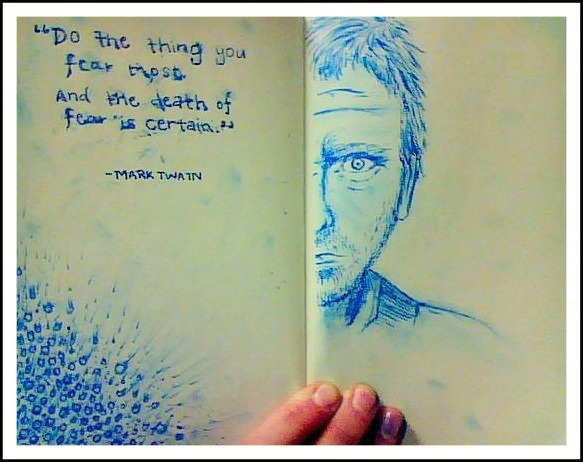 “Do the thing you
fear most
And the death of
fear is certain.”
-MARK TWAIN